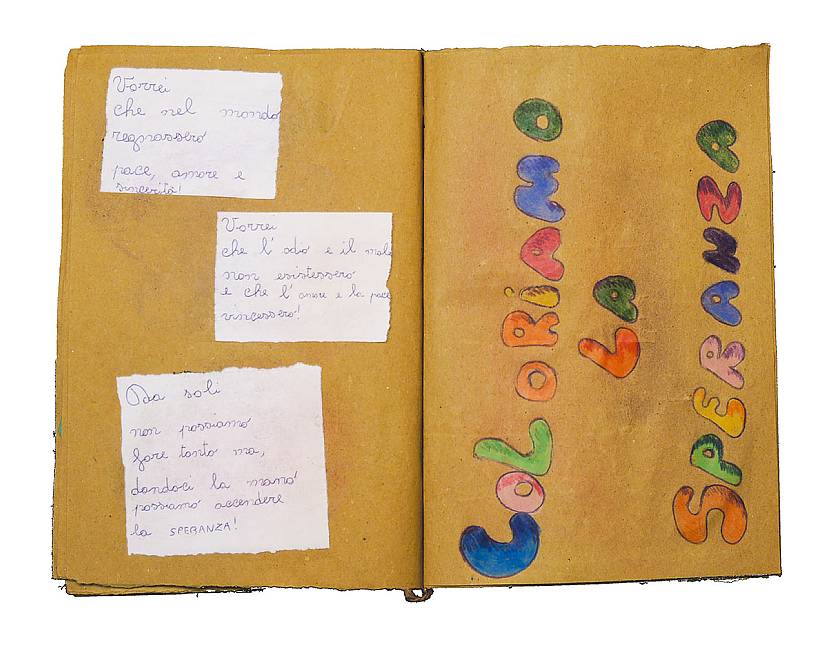 Vorrei
che nel mondo
regnassero
pace, amore e
sincerità!
Vorrei
che l'odio e il male
non esistessero
e che l'amore e la pace
vincessero!
Da soli
non possiamo
fare tanto ma,
dandoci la mano
possiamo accendere
la SPERANZA!
COLORIAMO
LA
SPERANZA